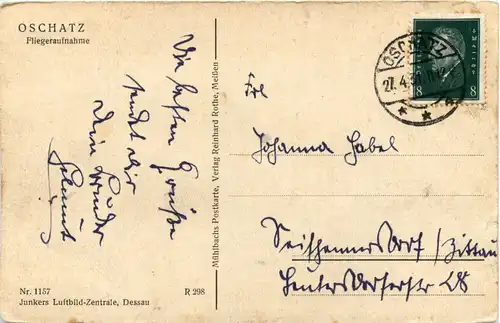 OSCHATZ
Fliegeraufnahme
Die besten Grüße
sendet Dir
Dein Bruder
Helmut
Mühlbachs Postkarte, Verlag Reinhard Rothe, Meißen
OSCHATZ
27.4.
8 8
Frl
Johanna Habel
Seifhennersdorf / Zittau
Leutersdorferstr
Nr. 1157
R 298
Junkers Luftbild-Zentrale, Dessau